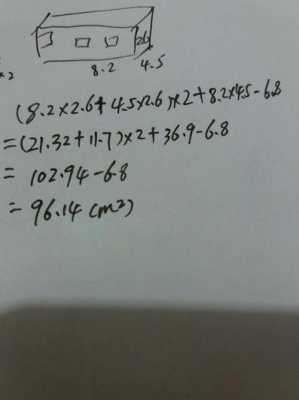 2.6
×2
8.2 4.5
(8.2×2.6+4.5×2.6)×2+8.2×4.5-6.8
=(21.32+11.7)×2+36.9-6.8
= 102.94-6.8
= 96.14 (m²)